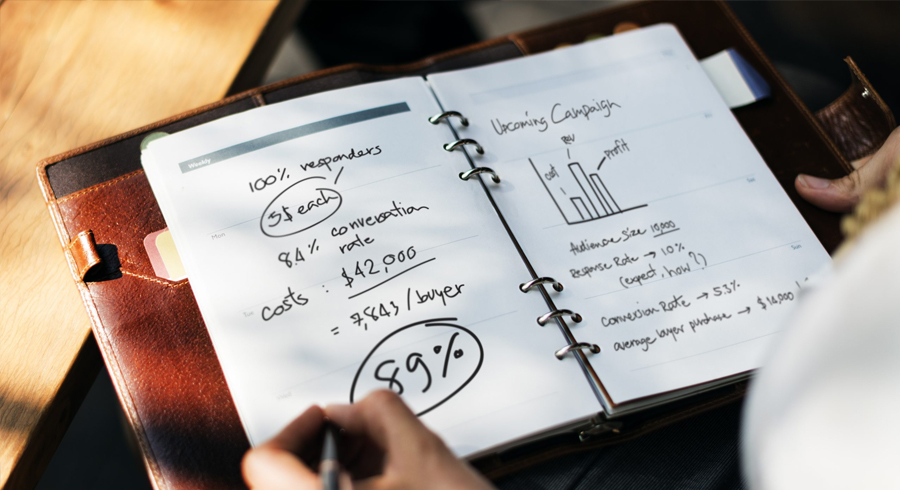 Weekly
100% responders
5$ each
8.4% conversation
rate
costs : $42,000
= 7,843 / buyer
89%
Mon
Upcoming Campaign
cost
profit
Audience size 10,000
Response Rate → 10%
(expect. how?)
Conversion Rate → 5.3%
average buyer purchase → $ 14,000